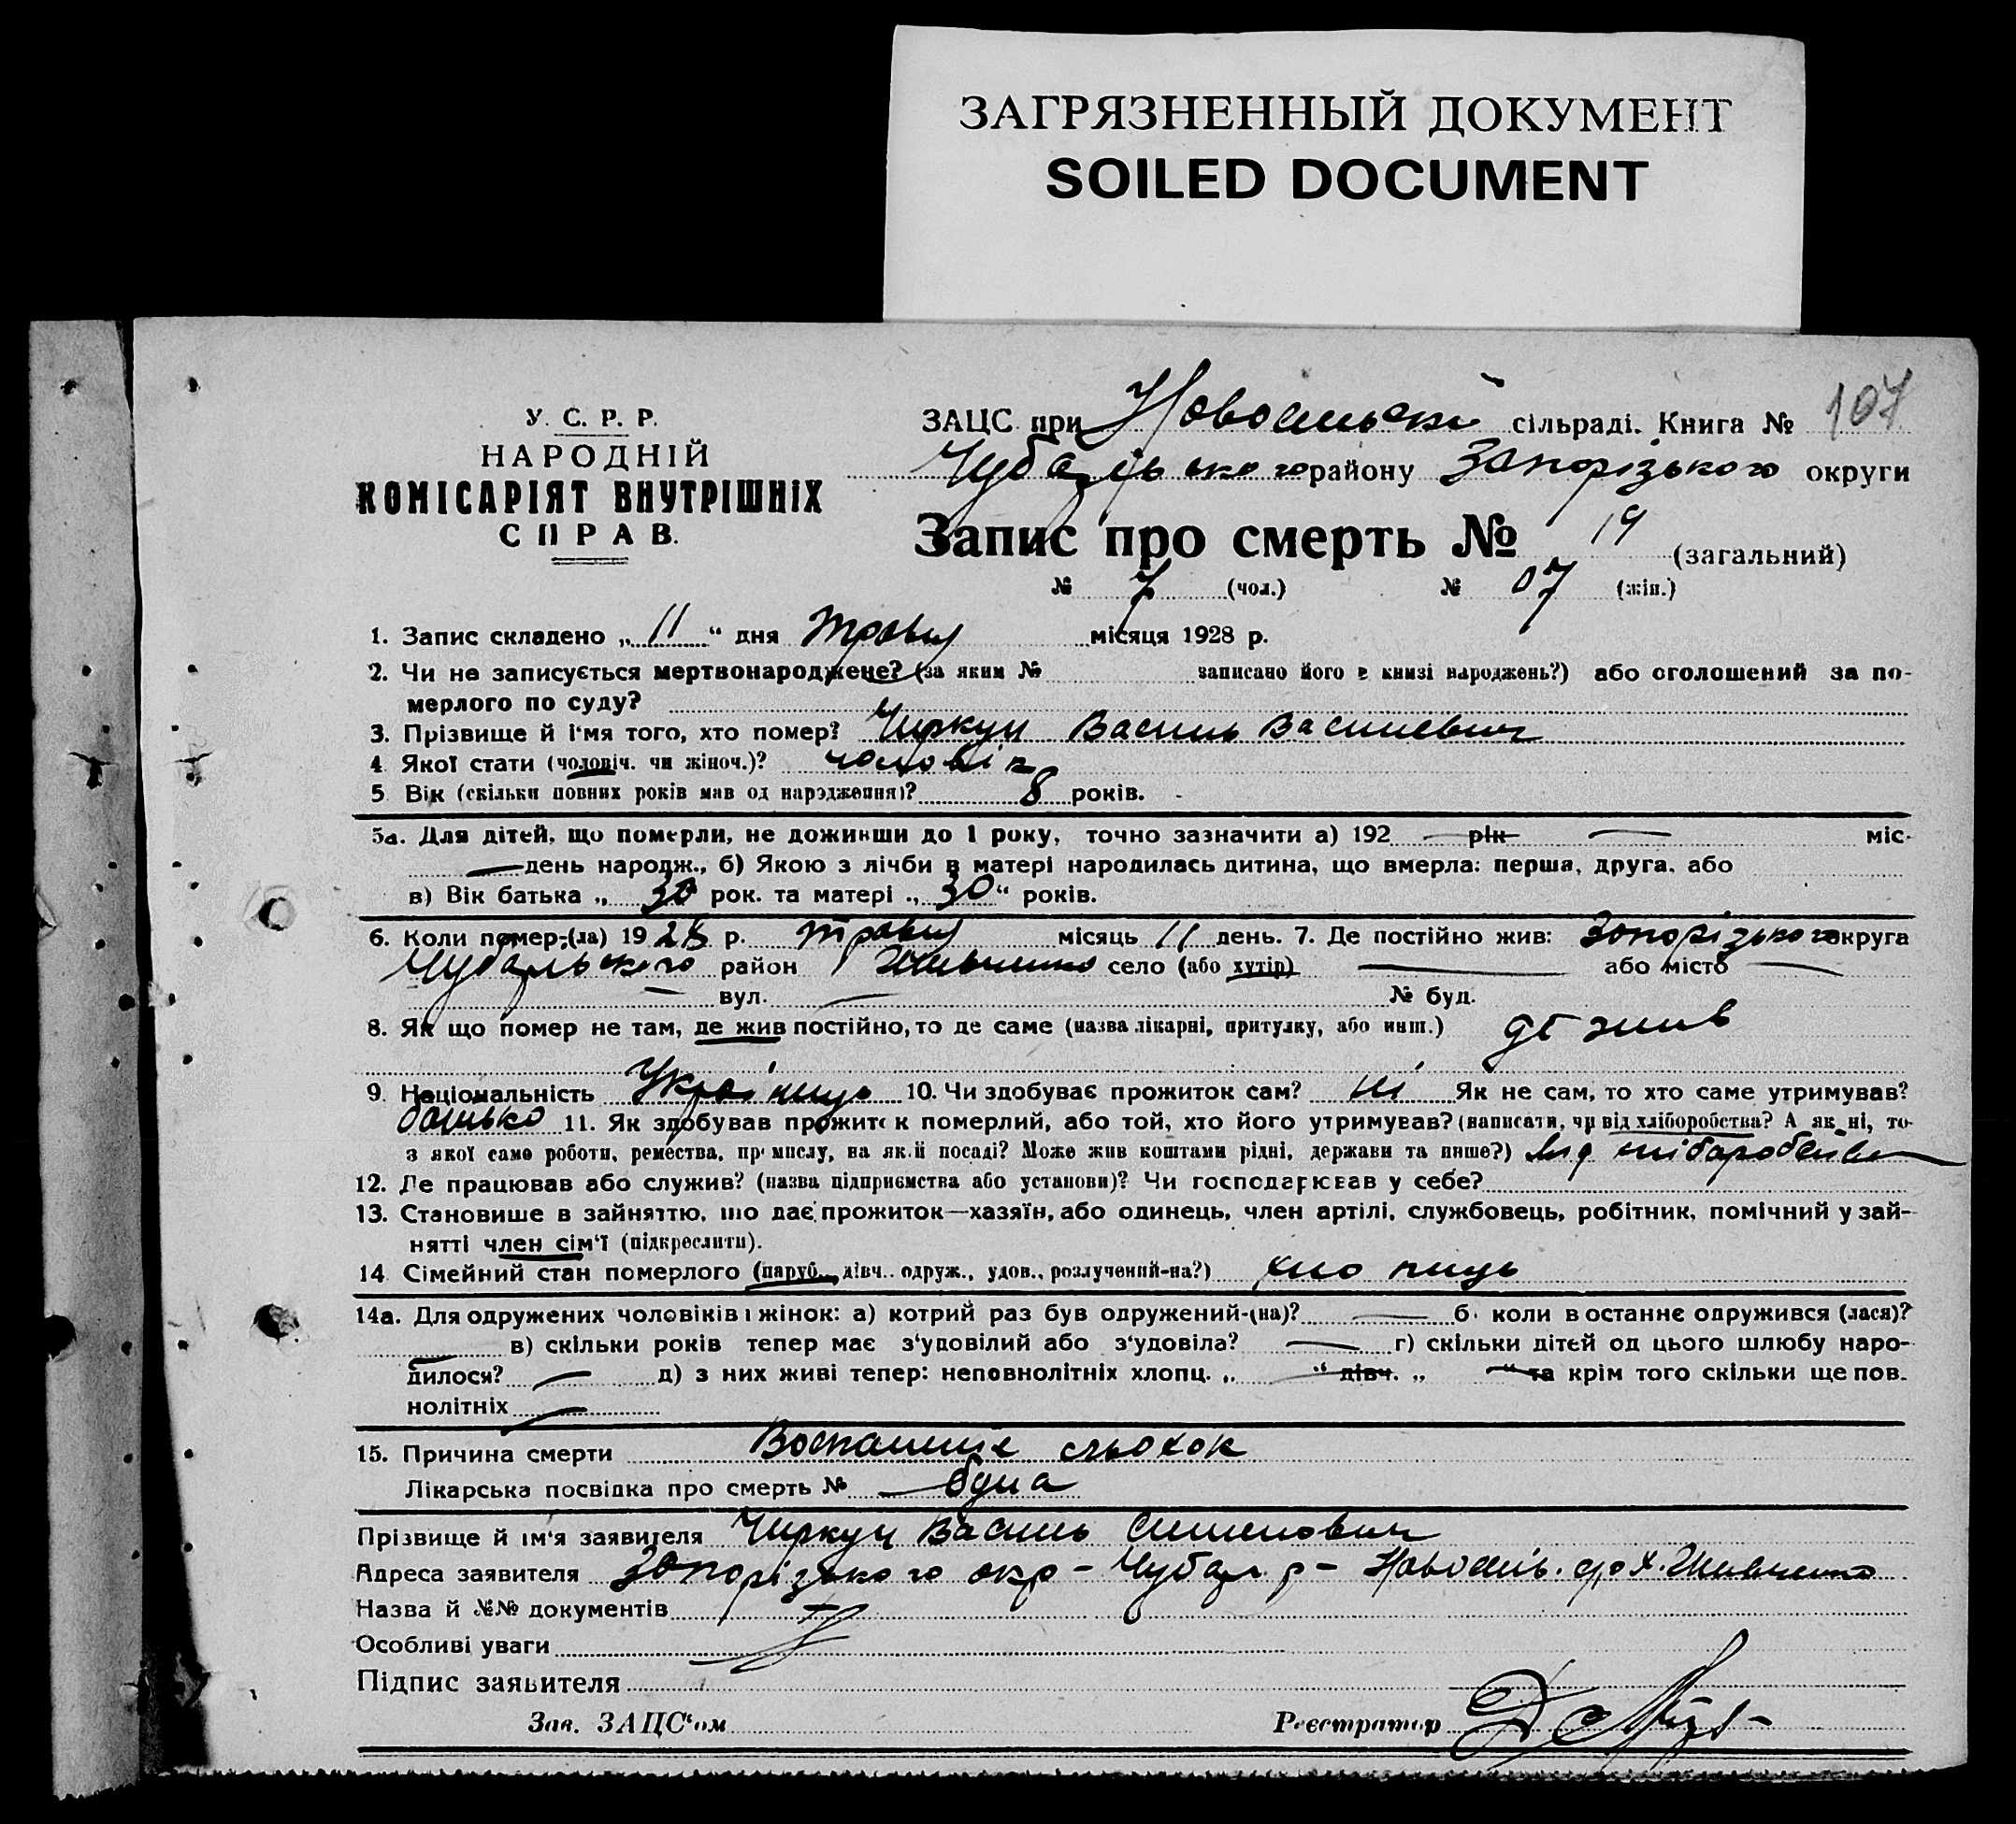 ЗАГРЯЗНЕННЫЙ ДОКУМЕНТ
SOILED DOCUMENT
У. С. Р. Р.
НАРОДНІЙ
КОМІСАРІЯТ ВНУТРІШНІХ
СПРАВ.
ЗАЦС при сільраді. Книга № 107
району Запорізького округи
Запис про смерть № 19 (загальний)
№ 7 (чол.) № 07 (жін.)
1. Запис складено „ 11 “ дня травня місяця 1928 р.
2. Чи не записується мертвонароджене? (за яким № записано його в книзі народжень?) або оголошений за по-
мерлого по суду?
3. Прізвище й і'мя того, хто помер? Чиркун Василь Васильевич
4 Якої стати (чоловіч. чи жіноч.)? чоловік
5 Вік (скільки повних років мав од народження)? 8 років.
5а. Для дітей, що померли, не доживши до 1 року, точно зазначити а) 192 — рік — міс-
— день народж., б) Якою з лічби в матері народилась дитина, що вмерла: перша, друга, або
в) Вік батька „ 30 рок. та матері „ 30 “ років.
6. Коли помер-(ла) 1928 р. травня місяць 11 день. 7. Де постійно жив: Запорізького округа
район Шевченко село (або хутір) — або місто —
— вул. — № буд.
8. Як що помер не там, де жив постійно, то де саме (назва лікарні, притулку, або инш.) де жив
9. Національність Українець 10. Чи здобуває прожиток сам? ні Як не сам, то хто саме утримував?
батько 11. Як здобував прожиток померлий, або той, хто його утримував? (написати, чи від хліборобства? А як ні, то-
з якої саме роботи, ремества, промислу, на якій посаді? Може жив коштами рідні, держави та инше?) від
12. Де працював або служив? (назва підприємства або установи)? Чи господарював у себе?
13. Становище в зайняттю, що дає прожиток—хазяїн, або одинець, член артілі, службовець, робітник, помічний у зай-
нятті член сім'ї (підкреслити).
14 Сімейний стан померлого (паруб., дівч., одруж., удов., розлучений-на?) хлопець
14а. Для одружених чоловіків і жінок: а) котрий раз був одружений-(на)? — б) коли в останнє одружився (лася)?
— в) скільки років тепер має з'удовілий або з'удовіла? — г) скільки дітей од цього шлюбу наро-
дилося? — д) з них живі тепер: неповнолітніх хлопц. „ — “ дівч. „ — “ та крім того скільки ще пов-
нолітніх —
15. Причина смерти Воспаление льохок
Лікарська посвідка про смерть №
Прізвище й ім'я заявителя Чиркун Василь
Адреса заявителя Запорізького окр – р – х. Шевченко
Назва й №№ документів —
Особливі уваги
Підпис заявителя
Зав. ЗАЦС'ом Реєстратор